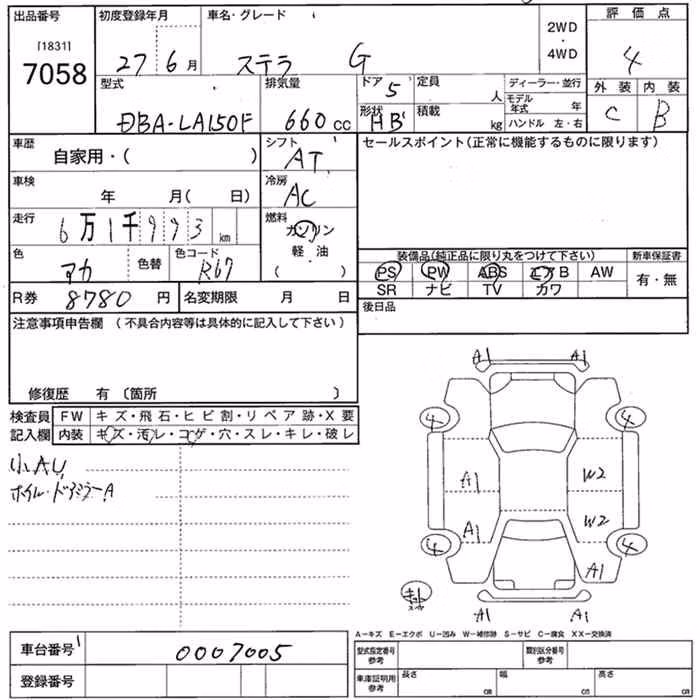 出品番号 初度登録年月 車名・グレード 評価点
[1831] 2WD
7058 27 6月 ステラ G 4WD 4
型式 排気量 ドア 5 定員 人 ディーラー・並行 外装 内装
モデル年式 年
DBA-LA150F 660cc 形状 HB 積載 kg ハンドル 左・右 C B
車歴 シフト セールスポイント(正常に機能するものに限ります)
自家用・( ) AT
車検 冷房
年 月( 日) AC
走行 燃料
6万1千993km ガソリン
色 色替 色コード 軽油 装備品(純正品に限り丸をつけて下さい) 新車保証書
アカ R67 ( ) PS PW ABS エアB AW 有・無
R券 8780円 名変期限 月 日 SR ナビ TV カワ
注意事項申告欄 (不具合内容等は具体的に記入して下さい) 後日品
修復歴 有〔箇所 )
検査員 FW キズ・飛石・ヒビ割・リペア跡・X要
記入欄 内装 キズ・汚レ・コゲ・穴・スレ・キレ・破レ
小AU
ホイル・ドアミラーA
A1 A1
4 4
A1 W2
A1 W2
4 4
A1
A1 A1
A−キズ E−エクボ U−凹み W−補修跡 S−サビ C−腐食 XX−交換済
車台番号 0007005 型式指定番号 参考 類別区分番号 参考
登録番号 車庫証明用 参考 長さ cm 幅 cm 高さ cm